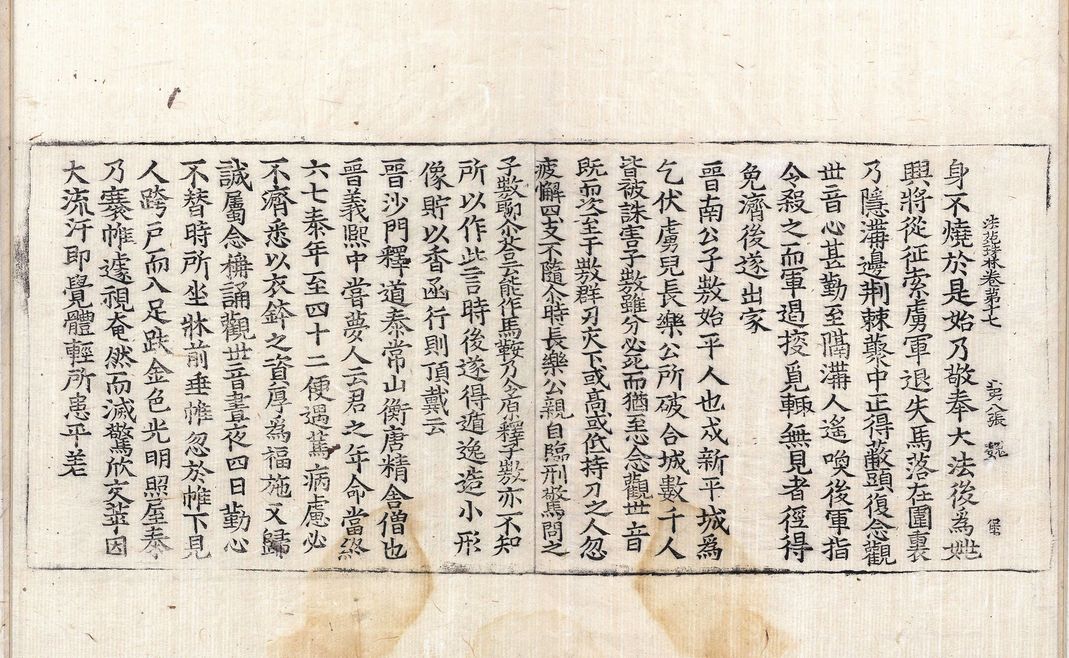 法苑珠林卷第十七 二十八張 魏
身不燒於是始乃敬奉大法後為姚
興將從征索虜軍退失馬落在圍裏
乃隱溝邊荆棘藂中正得蔽頭復念觀
世音心甚勤至隔溝人遙喚後軍指
令殺之而軍過搜覓輒無見者徑得
免濟後遂出家
晉南公子敖始平人也戍新平城為
乞伏虜兒長樂公所破合城數千人
皆被誅害子敖雖分必死而猶至心念觀世音
既而次至于敖群刃交下或高或低持刀之人忽
疲懈四支不隨尒時長樂公親自臨刑驚問之
子敖聊尒荅云能作馬鞍乃令原釋子敖亦不知
所以作此言時後遂得遁逸造小形
像貯以香函行則頂戴云
晉沙門釋道泰常山衡唐精舍僧也
晉義熙中嘗夢人云君之年命當終
六七泰年至四十二便遇篤病慮必
不濟悉以衣鉢之資厚為福施又歸
誠屬念稱誦觀世音晝夜四日勤心
不替時所坐牀前垂帷忽於帷下見
人跨戶而入足趺金色光明照屋泰
乃褰帷遽視奄然而滅驚欣交萃因
大流汗即覺體輕所患平差